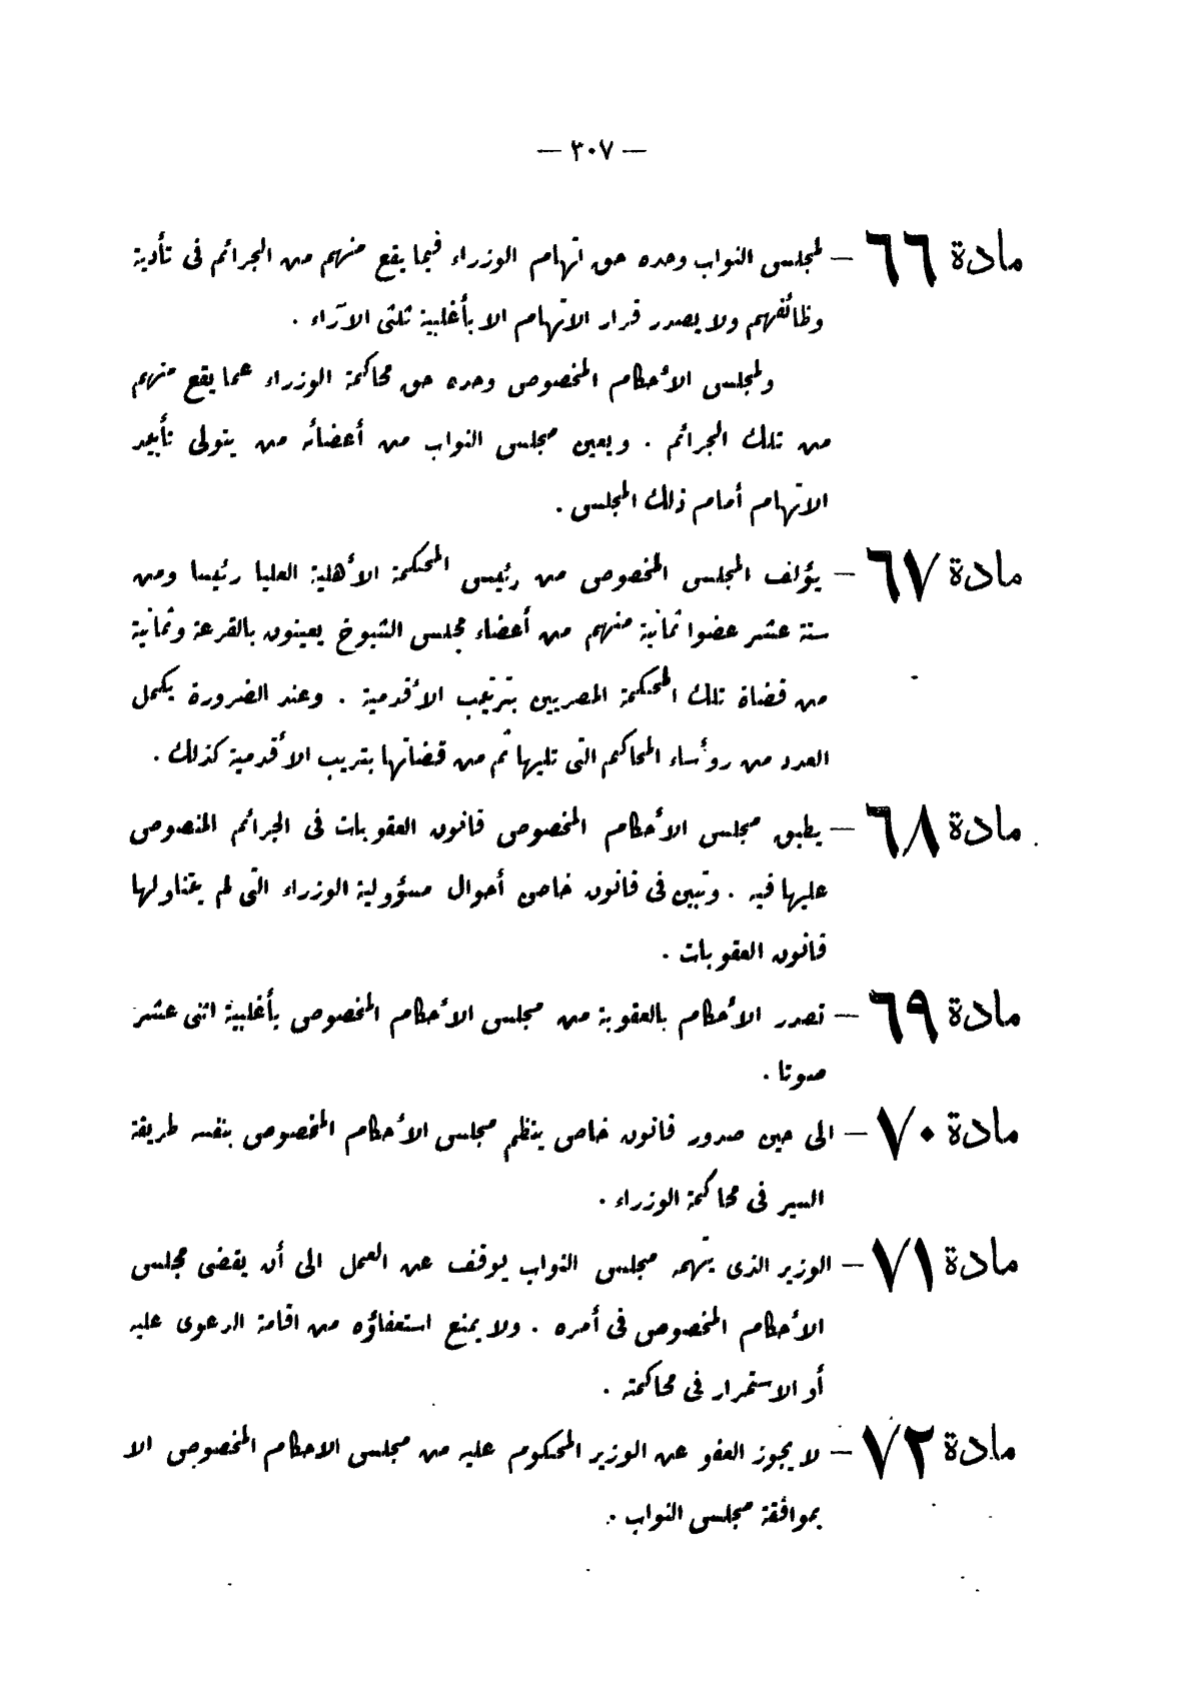 — ٣٠٧ —
مادة ٦٦ — لمجلس النواب وحده حق اتهام الوزراء فيما يقع منهم من الجرائم فى تأدية
وظائفهم ولا يصدر قرار الاتهام الا بأغلبية ثلثى الآراء .
ولمجلس الأحكام المخصوص وحده حق محاكمة الوزراء عما يقع منهم
من تلك الجرائم . ويعين مجلس النواب من أعضائه من يتولى تأييد
الاتهام أمام ذلك المجلس .
مادة ٦٧ — يؤلف المجلس المخصوص من رئيس المحكمة الأهلية العليا رئيسا ومن
ستة عشر عضوا ثمانية منهم من أعضاء مجلس الشيوخ يعينون بالقرعة وثمانية
من قضاة تلك المحكمة المصريين بترتيب الأقدمية . وعند الضرورة يكمل
العدد من رؤساء المحاكم التى تليها ثم من قضاتها بتريب الأقدمية كذلك .
مادة ٦٨ — يطبق مجلس الأحكام المخصوص قانون العقوبات فى الجرائم المنصوص
عليها فيه . وتبين فى قانون خاص أحوال مسؤولية الوزراء التى لم يتناولها
قانون العقوبات .
مادة ٦٩ — تصدر الأحكام بالعقوبة من مجلس الأحكام المخصوص بأغلبية اثنى عشر
صوتا .
مادة ٧٠ — الى حين صدور قانون خاص ينظم مجلس الأحكام المخصوص بنفسه طريقة
السير فى محاكمة الوزراء .
مادة ٧١ — الوزير الذى يتهمه مجلس النواب يوقف عن العمل الى أن يقضى مجلس
الأحكام المخصوص فى أمره . ولا يمنع استعفاؤه من اقامة الدعوى عليه
أو الاستمرار فى محاكمته .
مادة ٧٢ — لا يجوز العفو عن الوزير المحكوم عليه من مجلس الاحكام المخصوص الا
بموافقة مجلس النواب .